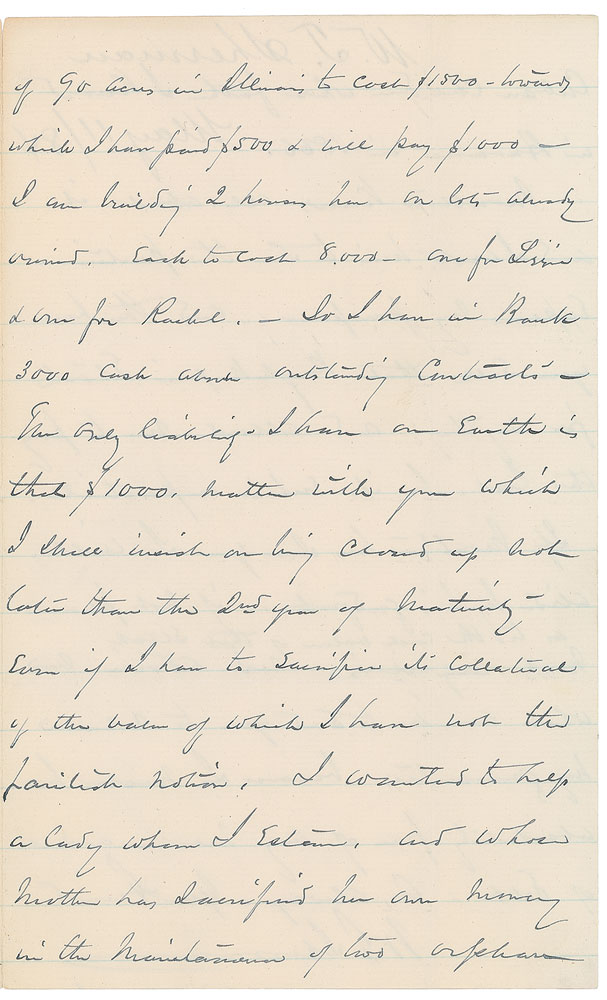 of 90 acres in Illinois to cost $1500 - towards
which I have paid $500 & will pay $1000 -
I am building 2 houses here on lots already
owned. Each to cost 8.000 - one for Lizzie
& one for Rachel. - So I have in Bank
3000 cash above outstanding Contracts -
The only liability I have on Earth is
that $1000. matter with you which
I shall insist on being Closed up not
later than the 2nd year of Maturity
Even if I have to Sacrifice its Collateral
of the value of which I have not the
faintest notion. I wanted to help
a Lady whom I Esteem, and whose
Mother has sacrificed her own money
in the Maintenance of two orphans
W. T. Sherman